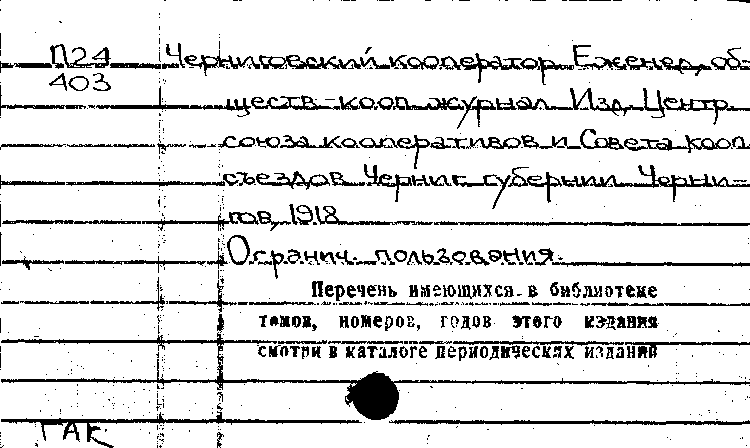 П24 Черниговский кооператор. Еженед. об-
403
ществ.-кооп. журнал. Изд. Центр.
союза кооперативов и Совета кооп.
съездов Черниг. губернии. Черни-
гов, 1918
Огранич. пользования.
Перечень имеющихся в библиотеке
томов, номеров, годов этого издания
смотри в каталоге периодических изданий
ГАК